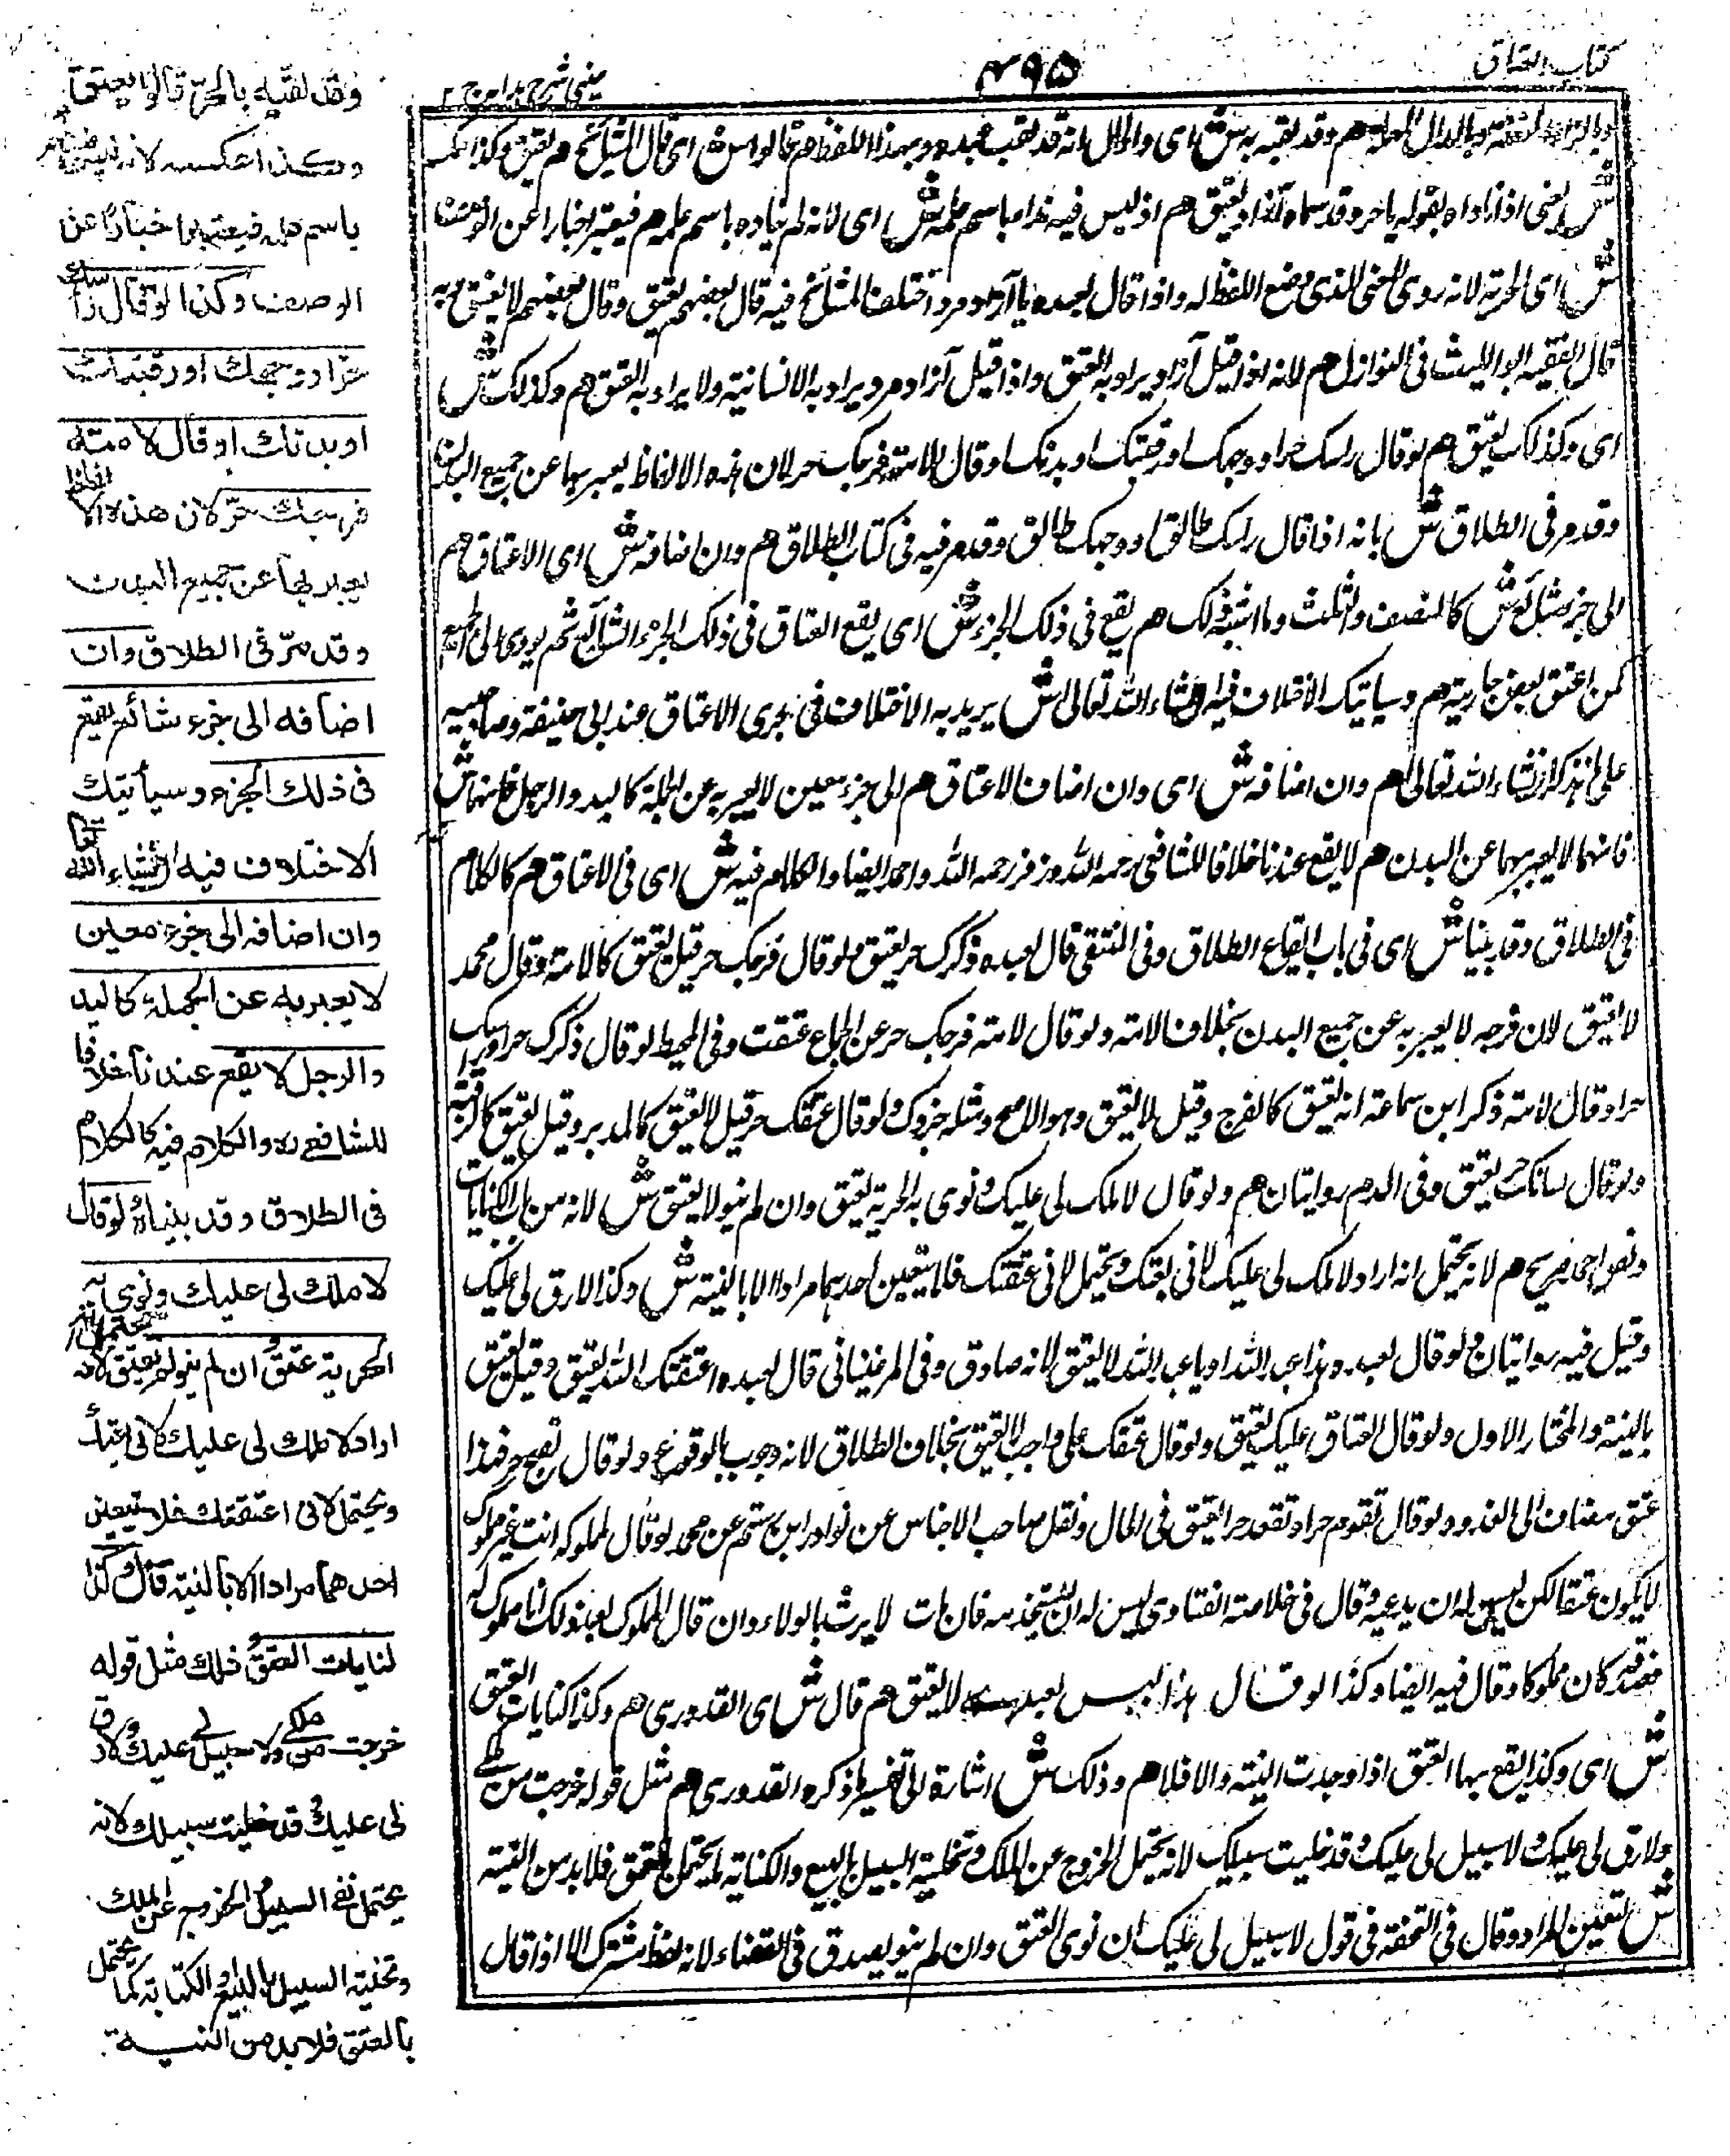 كتاب العتاق
٤٩٥
عيني شرح هداية ج ٢
وبالزاء وبالدال المهملة هم وقد لقبه به ش اى والحال انه قد لقب عبده بهذا اللفظ هم قالوا ش اى قال المشائخ هم يعتق وكذا عكسه
ش يعنى اذا ناداه بقوله يا حر وقد سماه آزاد يعتق هم اذ ليس فيه نداء باسم علمه ش اى لانه لم يناده باسم علمه هم فيعتبر اخبارا عن الوصف
ش اى الحرية لانه روى المعنى الذى وضع اللفظ له واذا قال لعبده يا آزاد مرد اختلف المشائخ فيه قال بعضهم يعتق وقال بعضهم لا يعتق وبه
قال الفقيه ابو الليث فى النوازل هم لانه اذا قيل آزاد يراد به العتق واذا قيل آزاد مرد يراد به الانسانية ولا يراد به العتق هم وكذلك ش
اى وكذلك يعتق هم لو قال راسك حر او وجهك او رقبتك او بدنك او قال لامته فرجك حر لان هذه الالفاظ يعبر بها عن جميع البدن
وقد مر فى الطلاق ش بانه اذا قال راسك طالق او وجهك طالق وقد مر فيه فى كتاب الطلاق هم وان اضافه ش اى الاعتاق هم
الى جزء شائع ش كالنصف والثلث وما اشبه ذلك هم يقع فى ذلك الجزء ش اى يقع العتاق فى ذلك الجزء الشائع ثم يودى الى الجميع
كمن اعتق بعض جاريته هم وسياتيك الاختلاف فيه ان شاء الله تعالى ش يريد به الاختلاف فى تجزى الاعتاق عند ابى حنيفة وصاحبيه
على ما نذكر ان شاء الله تعالى هم وان اضافه ش اى وان اضاف الاعتاق هم الى جزء معين لا يعبر به عن الجملة كاليد والرجل فانهما ش
فانهما لا يعبر بهما عن البدن هم لا يقع عندنا خلافا للشافعى رحمه الله وزفر رحمه الله واحمد ايضا والكلام فيه ش اى فى الاعتاق هم كالكلام
فى الطلاق وقد بيناه ش اى فى باب ايقاع الطلاق وفى المنتقى قال لعبده ذكرك حر يعتق ولو قال فرجك حر قيل يعتق كالامة وقال محمد
لا يعتق لان فرجه لا يعبر به عن جميع البدن بخلاف الامة ولو قال لامته فرجك حر عن الجماع عتقت وفى المحيط لو قال ذكرك حر او استك
حر او قال لامته ذكر ابن سماعة انه يعتق كالفرج وقيل لا يعتق وهو الاصح ومثله جزوك ولو قال عتقك حر قيل لا يعتق كالمدبر وقيل يعتق كالرقبة
ولو قال لسانك حر يعتق وفى الدم روايتان هم ولو قال لا ملك لى عليك ونوى به الحرية يعتق وان لم ينو لا يعتق ش لانه من باب الكنايات
وهو احد صريح هم لانه يحتمل انه اراد لا ملك لى عليك لانى بعتك ويحتمل لانى عتقتك فلا يتعين احدهما مرادا الا بالنية ش وكذا لا رق لى عليك
وقيل فيه روايتان ولو قال لعبده هذا عبد الله او يا عبد الله لا يعتق لانه صادق وفى المرغينانى قال لعبده اعتقتك الله يعتق وقيل يعتق
بالنية والمختار الاول ولو قال العتاق عليك يعتق ولو قال عتقك على واجب لا يعتق بخلاف الطلاق لانه وجوب بالوقوع ولو قال تصبح حر فهذا
عتق مضاف الى الغد ولو قال تقوم حر او تقعد حر يعتق فى الحال ونقل صاحب الاجناس عن نوادر ابن رستم عن محمد لو قال لمملوكه انت غير مملوك
لا يكون عتقا لكن ليس له ان يدعيه وقال فى خلاصة الفتاوى ليس له ان يستخدمه فان مات لا يرث بالولاء وان قال المملوك بعد ذلك انا مملوك له
فصدقه كان مملوكا وقال فيه ايضا وكذا لو قال هذا ليس بعبدى لا يعتق هم قال ش اى القدورى هم وكذا كنايات العتق
ش اى وكذا يقع بها العتق اذا وجدت النية والا فلا هم وذلك ش اشارة الى تفسير ما ذكره القدورى هم مثل قوله خرجت من ملكى
ولا رق لى عليك ولا سبيل لى عليك وقد خليت سبيلك لانه يحتمل الخروج عن الملك وتخلية السبيل بالبيع والكتابة كما يحتمل بالعتق فلا بد من النية
ش لتعيين المراد وقال فى التحفة فى قول لا سبيل لى عليك ان نوى العتق وان لم ينو يصدق فى القضاء لانه لفظ مشترك اما اذا قال
وقد لقبه بالحر قالوا يعتق
وكذا عكسه لانه ليس بنداء
باسم علمه فيعتبر اخبارا عن
الوصف وكذا لو قال راسك
حر او وجهك او رقبتك
او بدنك او قال لامته
فرجك حر لان هذه الالفاظ
يعبر بها عن جميع البدن
وقد مر فى الطلاق وان
اضافه الى جزء شائع يقع
فى ذلك الجزء وسيأتيك
الاختلاف فيه ان شاء الله تعالى
وان اضافه الى جزء معين
لا يعبر به عن الجملة كاليد
والرجل لا يقع عندنا خلافا
للشافعى ره والكلام فيه كالكلام
فى الطلاق وقد بيناه ولو قال
لا ملك لى عليك ونوى به
الحرية عتق وان لم ينو لم يعتق لانه يحتمل انه
اراد لا ملك لى عليك لانى بعتك
ويحتمل لانى اعتقتك فلا يتعين
احدهما مرادا الا بالنية قال وكذا
كنايات العتق وذلك مثل قوله
خرجت من ملكى ولا سبيل لى عليك ولا رق
لى عليك وقد خليت سبيلك لانه
يحتمل نفى السبيل والخروج عن الملك
وتخلية السبيل بالبيع او الكتابة كما يحتمل
بالعتق فلا بد من النية